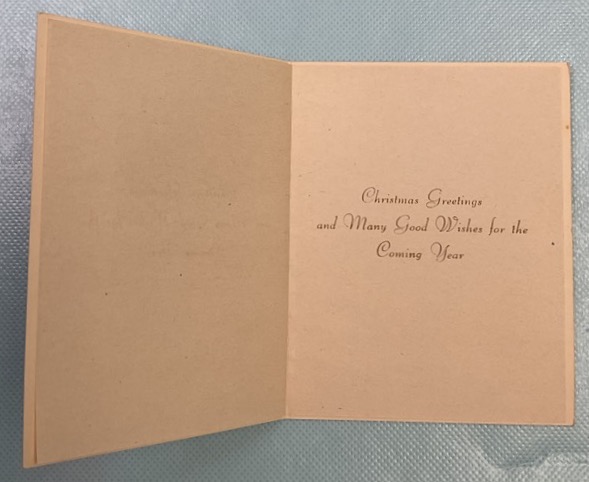 Christmas Greetings
and Many Good Wishes for the
Coming Year